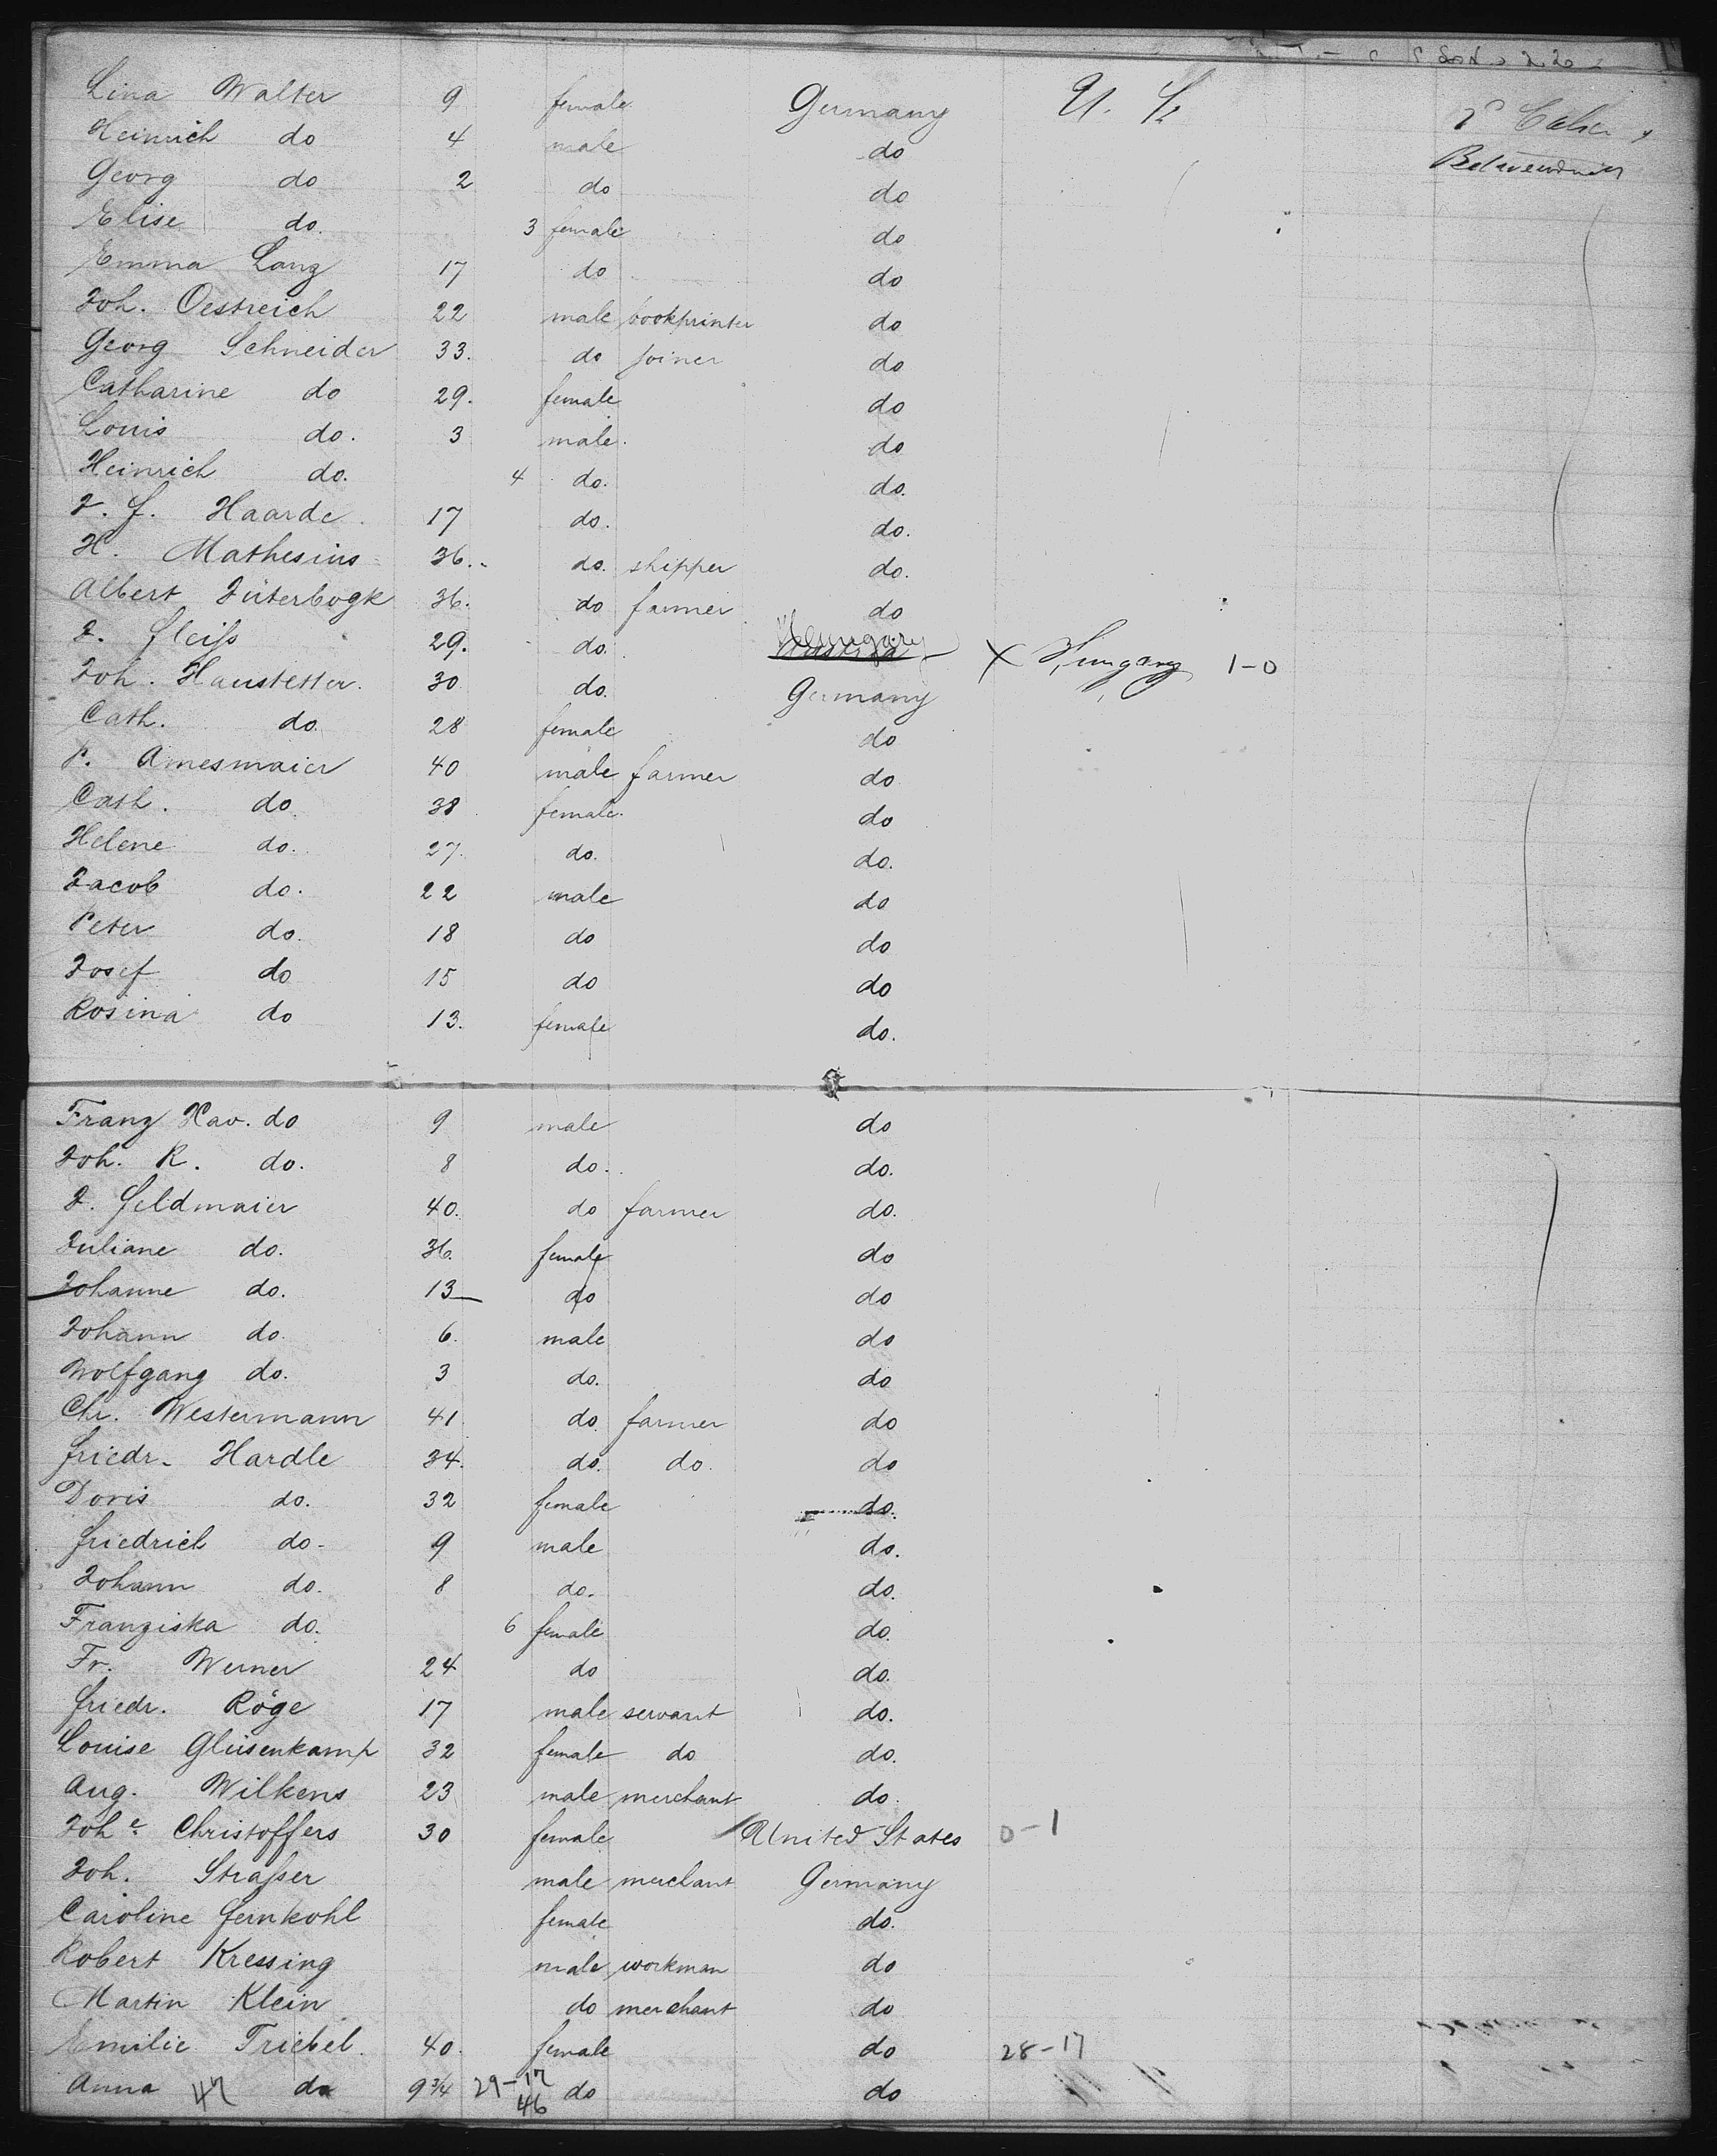 Lina Walter 9 female Germany U. S.
Heinrich do 4 male do
Georg do 2 do do
Elise do. 3 female do
Emma Lang 17 do do
Joh. Oestreich 22 male bookprinter do
Georg Schneider 33. do joiner do
Catharine do 29. female do
Louis do. 3 male. do
Heinrich do. 4 do. do.
J. F. Haarde 17 do. do.
H. Mathesius 36. do. shipper do.
Albert Jüterbogk 36. do farmer do
J. Fleiß 29. do. X Hungary 1-0
Joh. Haustetter. 30 do. Germany
Cath. do. 28 female do
P. Amesmaier 40 male farmer do
Cath. do. 38 female. do
Helene do. 27. do. do.
Jacob do. 22 male do
Peter do. 18 do do
Josef do 15 do do
Rosina do 13. female do.
Franz Xav. do 9 male do
Joh. R. do. 8 do. do.
J. Feldmaier 40. do farmer do.
Juliane do. 36. female do
Johanne do. 13 do do
Johann do. 6. male do
Wolfgang do. 3 do. do
Chr. Westermann 41 do. farmer do
Friedr. Hardle 34. do. do. do
Doris do. 32 female do.
Friedrich do. 9 male do.
Johann do. 8 do. do.
Franziska do. 6 female do.
Fr. Werner 24 do do.
Friedr. Röge 17 male servant do.
Louise Glüsenkamp 32 female do do.
Aug. Wilkens 23 male merchant do.
Joh<sup>e</sup>. Christoffers 30 female United States 0-1
Joh. Straßer male merchant Germany
Caroline Feinkohl female do.
Robert Kressing male workman do
Martin Klein do merchant do
Emilie Triebel. 40. female do 28-17
Anna 47 do 9 3/4 29-17 do do
46